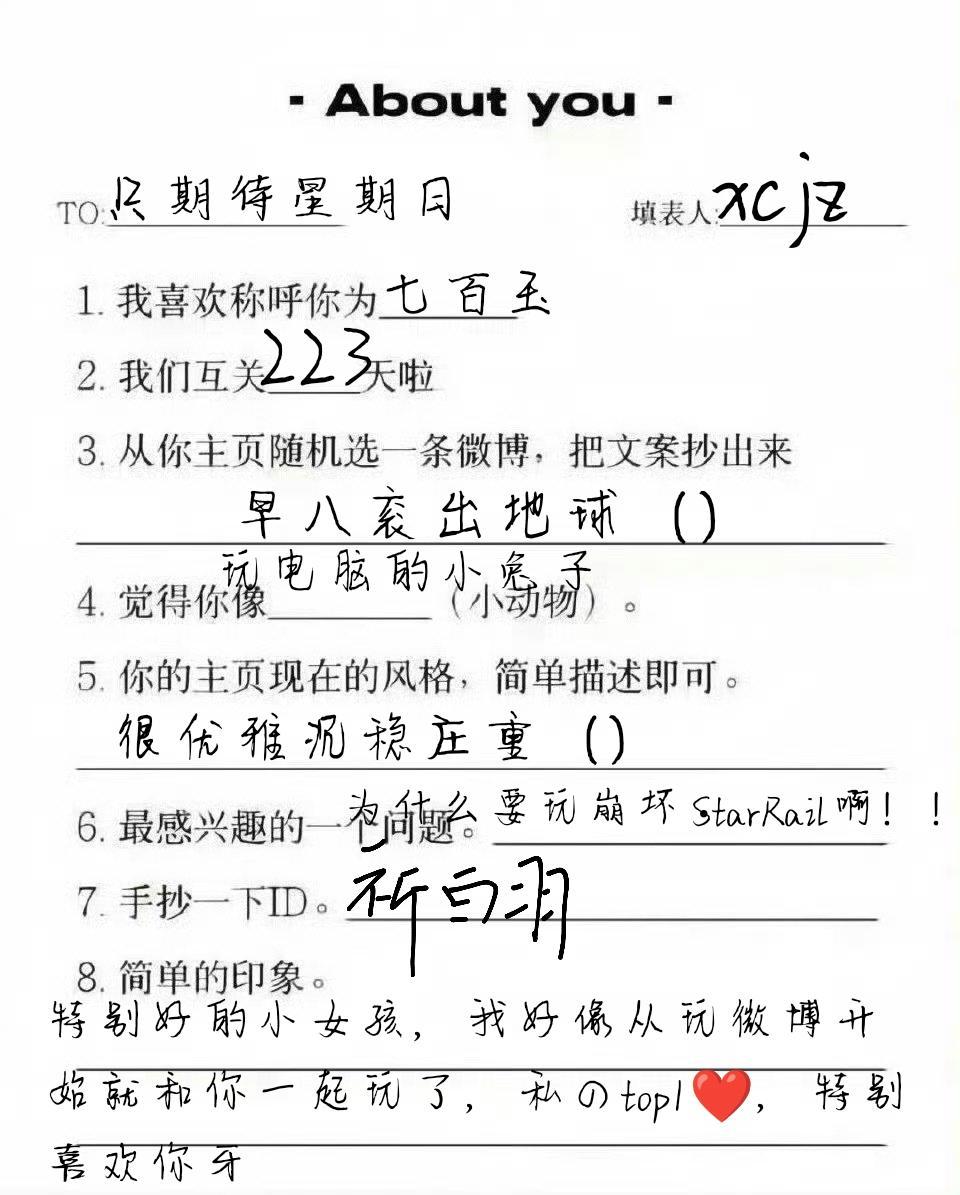 - About you -
TO:只期待星期日 填表人:xcjz
1. 我喜欢称呼你为七百玉
2. 我们互关223天啦
3. 从你主页随机选一条微博，把文案抄出来
早八滚出地球 ()
玩电脑的小兔子
4. 觉得你像（小动物）。
5. 你的主页现在的风格，简单描述即可。
很优雅沉稳庄重 ()
为什么要玩崩坏StarRail啊！！
6. 最感兴趣的一个问题。
7. 手抄一下ID。祈白羽
8. 简单的印象。
特别好的小女孩，我好像从玩微博开
始就和你一起玩了，私のtop1❤️，特别
喜欢你牙